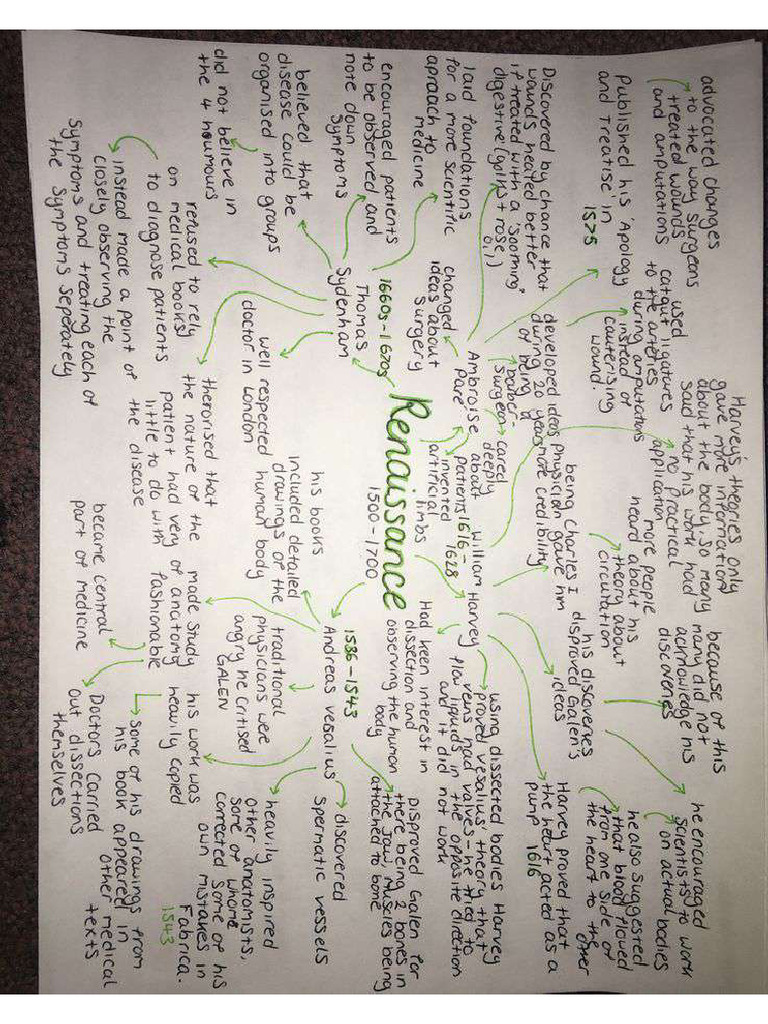 Renaissance
1500-1700
Ambroise
Paré
changed
ideas about
surgery
barber-
surgeon
cared
deeply
about
patients
invented
artificial
limbs
developed ideas
during 20 years
of being a
used
catgut ligatures
to the arteries
during amputations
instead of
cauterising
wound.
advocated changes
to the way surgeons
treated wounds
and amputations
published his 'Apology
and Treatise' in
1575
Discovered by chance that
wounds healed better
if treated with a 'sooming'
digestive (yolks + rose
oil)
Thomas
Sydenham
1660s-1670s
laid foundations
for a more scientific
aproach to
medicine
encouraged patients
to be observed and
note down
symptoms
believed that
disease could be
organised into groups
did not believe in
the 4 houmours
refused to rely
on medical books
to diagnose patients
instead made a point of
closely observing the
symptoms and treating each of
the symptoms seperately
therorised that
the nature of the
patient had very
little to do with
the disease
well respected
doctor in London
William Harvey
1616-
1628
being Charles I
physician gave him
more credibility
more people
heard about his
theory about
circulation
Harvey's theories only
gave more information
about the body, so many
said that his work had
no practical
application
because of this
many did not
acknowledge his
discoveries
his discoveries
disproved Galen's
ideas
he encouraged
scientists to work
on actual bodies
he also suggested
that blood flowed
from one side of
the heart to the other
Harvey proved that
the heart acted as a
pump 1616
using dissected bodies Harvey
proved vesalius' theory that
veins had valves - he tried to
flow liquids in the opposite direction
and it did not work
Had keen interest in
dissection and
observing the human
body
Andreas vesalius
1536-1543
Disproved Galen for
there being 2 bones in
the jaw, muscles being
attached to bone
discovered
spermatic vessels
heavily inspired
other anatomists,
some of whome
corrected some of his
own mistakes in
Fabrica.
1543
traditional
physicians were
angry he critised
GALEN
his books
included detailed
drawings of the
human body
his work was
heavily copied
some of his drawings from
his book appeared in
other medical
texts
made study
of anatomy
fashionable
became central
part of medicine
Doctors carried
out dissections
themselves